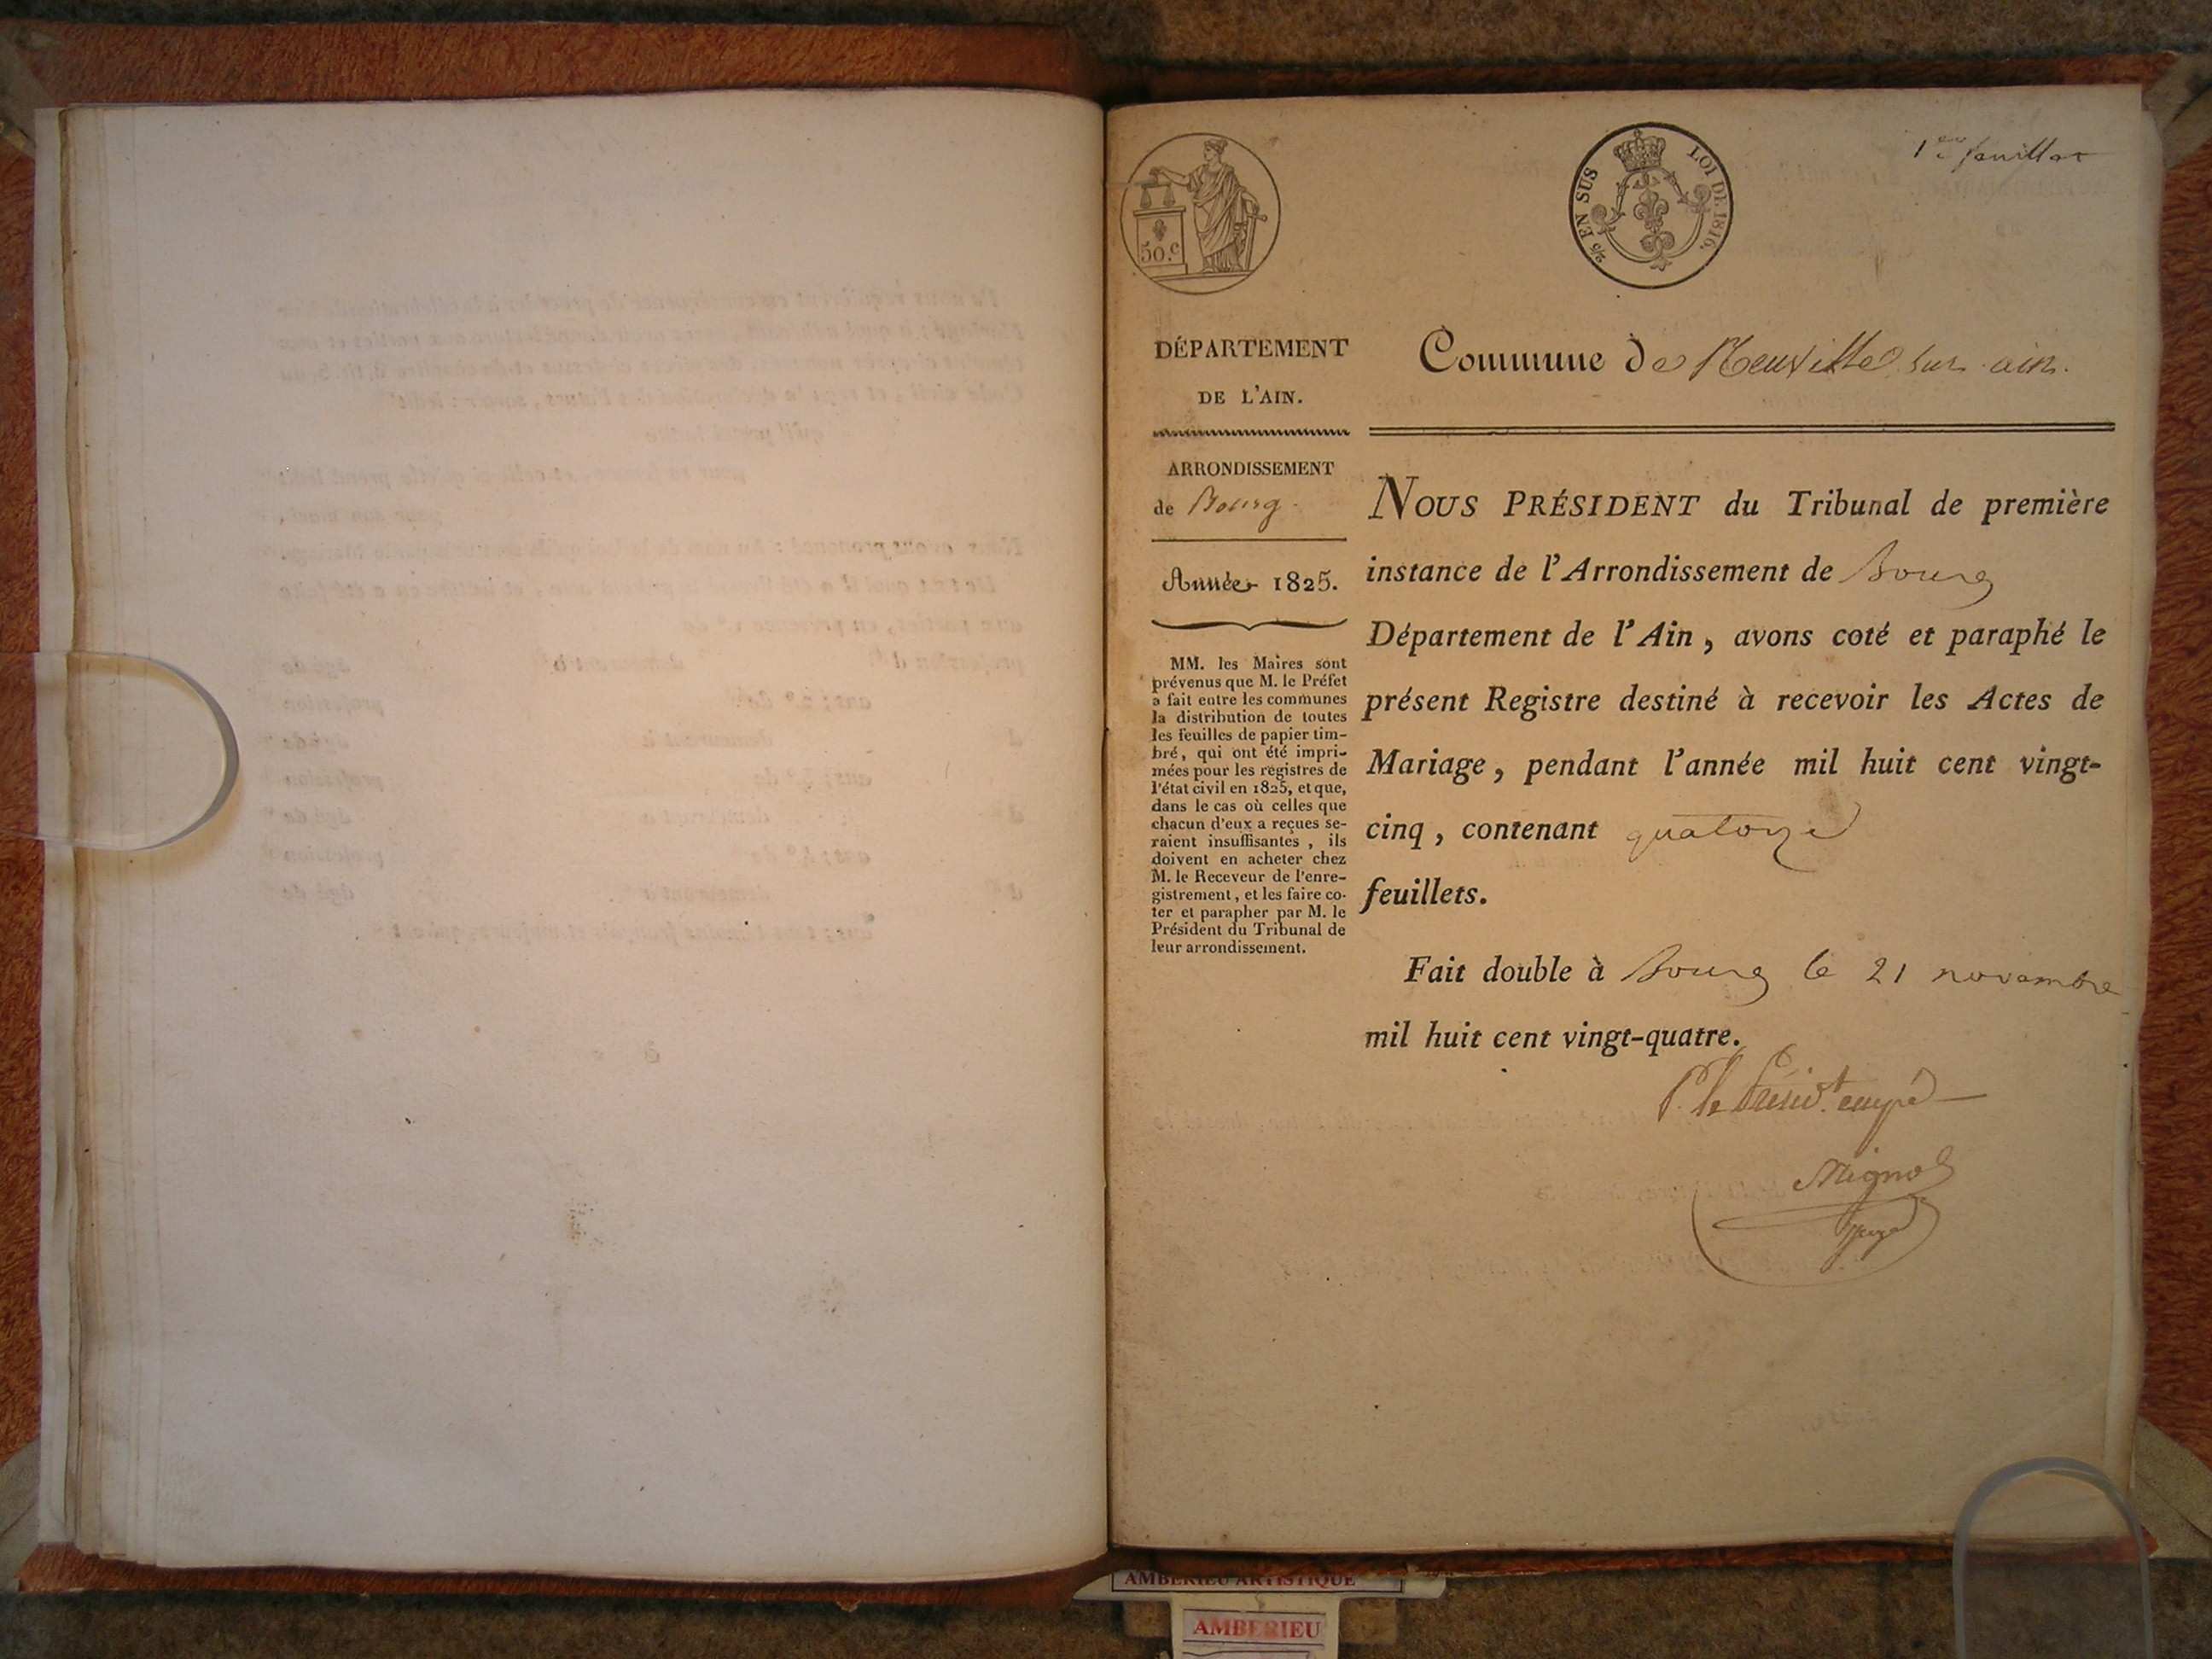 1er feuillet
50.c
EN SUS
LOI DE 1816.
DÉPARTEMENT
DE L'AIN.
ARRONDISSEMENT
de Bourg.
Année 1825.
MM. les Maires sont
prévenus que M. le Préfet
a fait entre les communes
la distribution de toutes
les feuilles de papier tim-
bré, qui ont été impri-
mées pour les registres de
l'état civil en 1825, et que,
dans le cas où celles que
chacun d'eux a reçues se-
raient insuffisantes, ils
doivent en acheter chez
M. le Receveur de l'enre-
gistrement, et les faire co-
ter et parapher par M. le
Président du Tribunal de
leur arrondissement.
Commune de Neuville sur ain.
NOUS PRÉSIDENT du Tribunal de première
instance de l'Arrondissement de Bourg
Département de l'Ain, avons coté et paraphé le
présent Registre destiné à recevoir les Actes de
Mariage, pendant l'année mil huit cent vingt-
cinq, contenant quatorze
feuillets.
Fait double à Bourg le 21 novembre
mil huit cent vingt-quatre.
P. le Présid.t empé
juge
AMBERIEU ARTISTIQUE
AMBERIEU